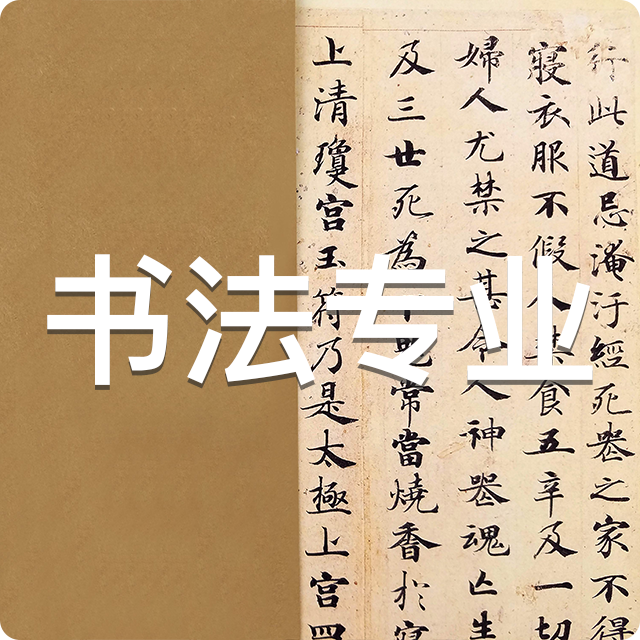 书法专业
行此道忌淹汙經死喪之家不得
寢衣服不假人禁食五辛及一切
婦人尤禁之甚令人神喪魂亡生
及三世死為下鬼常當燒香於寢
上清瓊宮玉符乃是太極上宮四